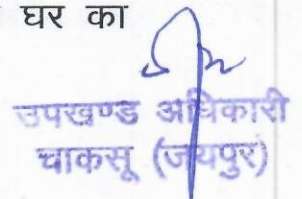 घर का
उपखण्ड अधिकारी
चाकसू (जयपुर)